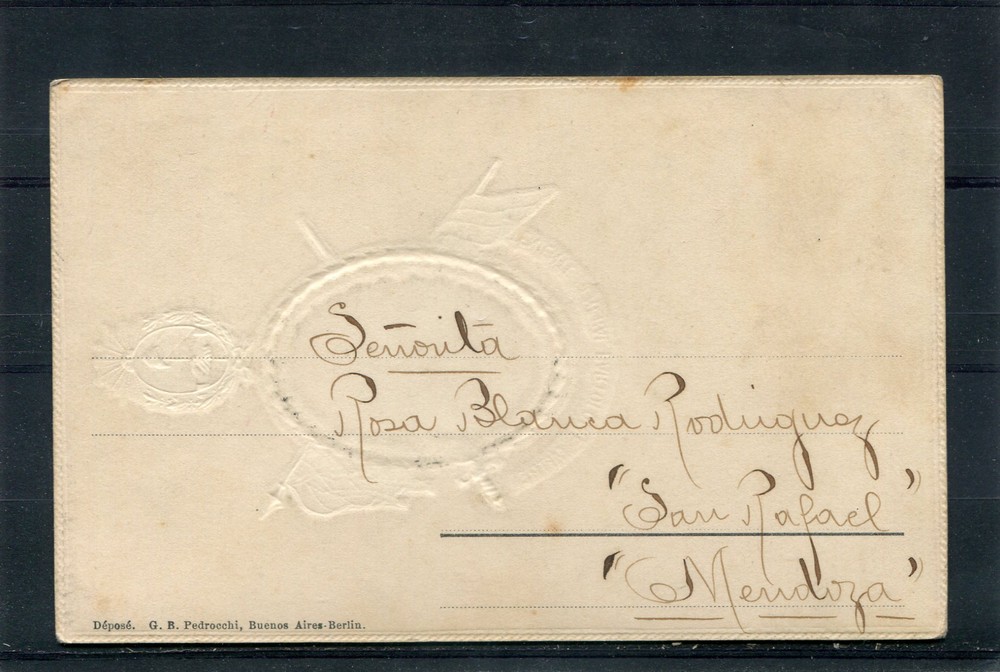 Señorita
Rosa Blanca Rodriguez
"San Rafael"
"Mendoza"
Déposé. G. B. Pedrocchi, Buenos Aires-Berlin.